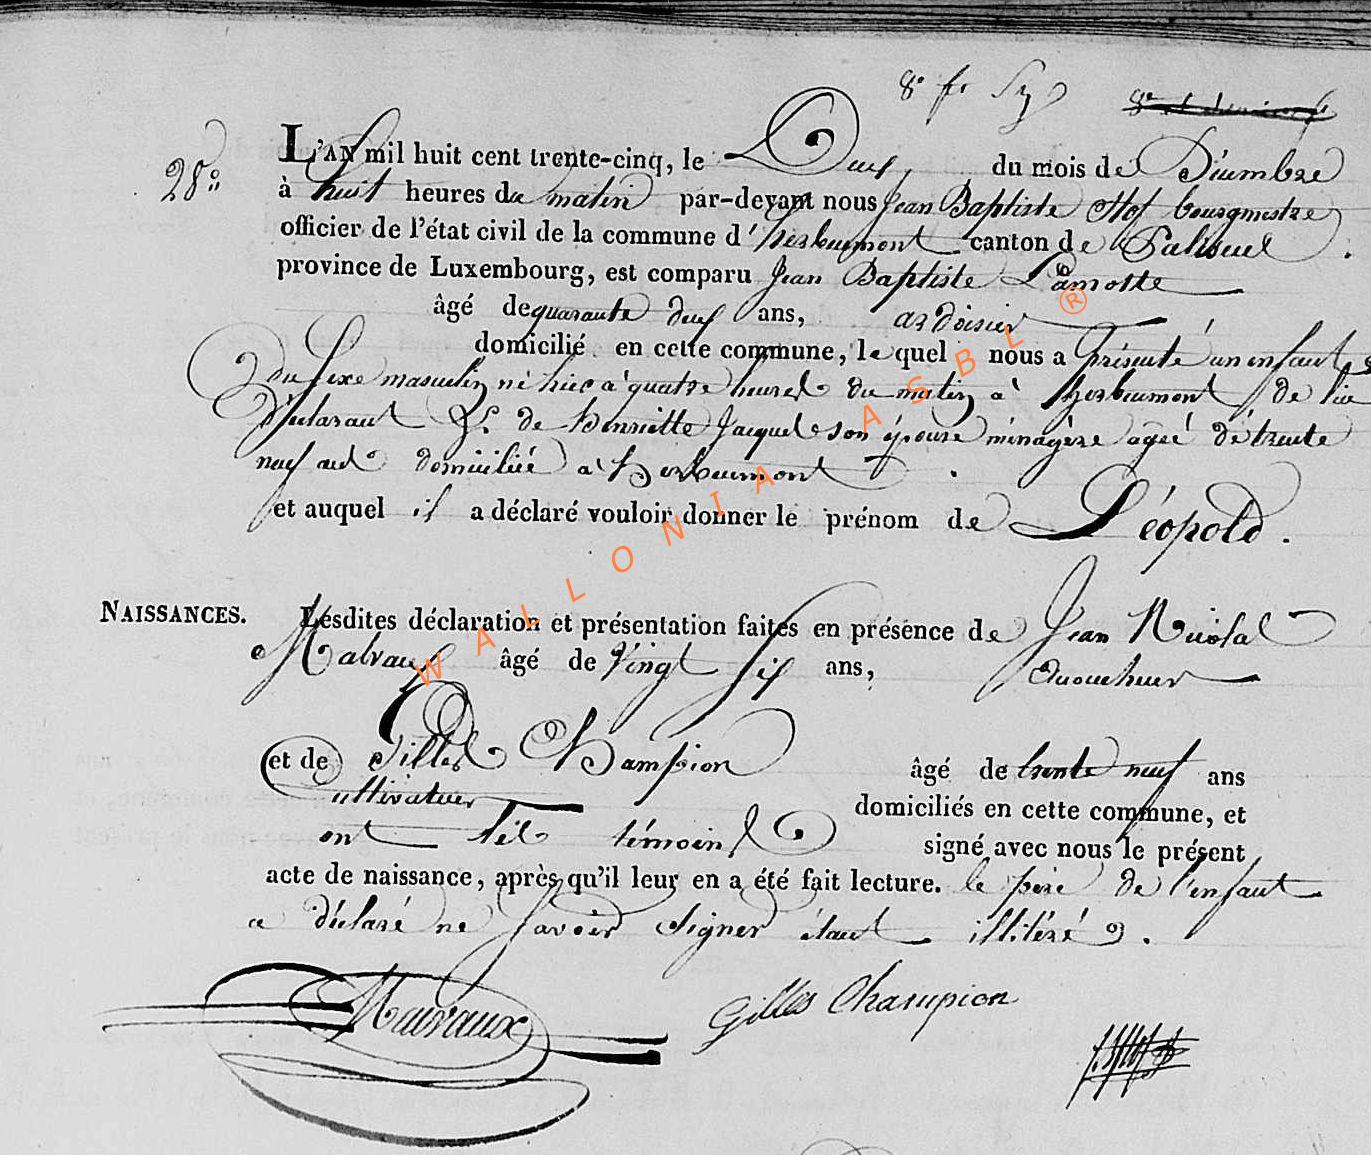 28e
L'AN mil huit cent trente-cinq, le Deux, du mois de Décembre
à huit heures du matin par-devant nous Jean Baptiste bourgmestre
officier de l'état civil de la commune d'herbeumont canton de Paliseul
province de Luxembourg, est comparu Jean Baptiste Lamotte
âgé de quarante deux ans, ardoisier
domicilié en cette commune, lequel nous a présenté un enfant
du sexe masculin né hier à quatre heures du matin à herbeumont de lui
Déclarant & de henriette Jacques son épouse ménagère agée de trente
neuf ans domiciliée à herbeumont
et auquel il a déclaré vouloir donner le prénom de Léopold.
NAISSANCES. Lesdites déclaration et présentation faites en présence de Jean Nicolas
Malvaux âgé de Vingt six ans,
et de Gilles Champion âgé de trente neuf ans
Cultivateur domiciliés en cette commune, et
ont témoins signé avec nous le présent
acte de naissance, après qu'il leur en a été fait lecture. le père de l'enfant
a déclaré ne savoir signer étant illitéré.
Malvaux Gilles Champion
WALLONIA ASBL ®